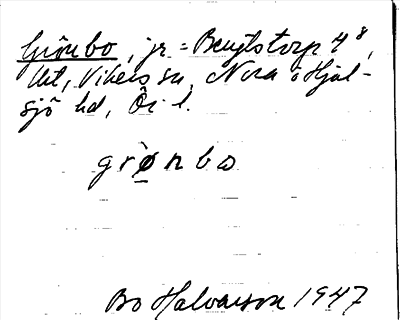 Grönbo, jr = Bengtstorp 4⁸,
Utt, Vikers sn, Nora o Hjul-
sjö hd, Ör l.
grø̀nbo
Bo Halvarson 1947